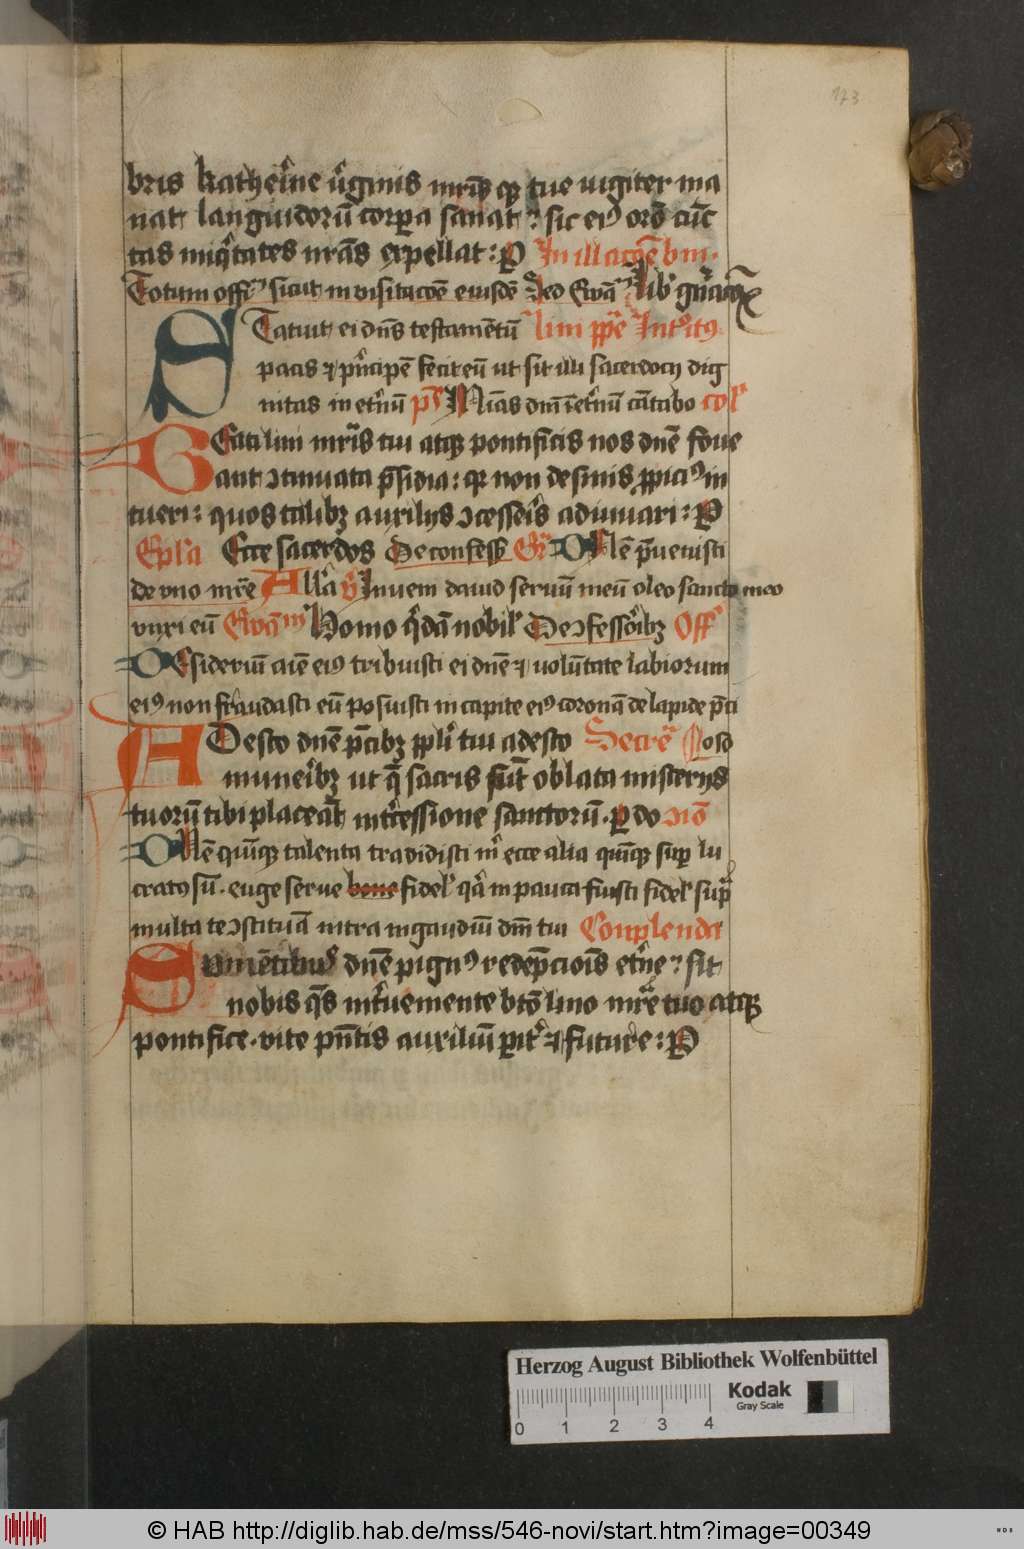 173
bris katherīne v̄ginis mēbris q̨ tue uigiter ma
nat languidorū corpꝑa sanat : sic eiꝰ orō cūc
tas iniq̄tates nr̄as expellat : P In illacōe b m̄.
Totum offm̄ sicut in visitacōe eiusdē
S Tatuit ei dn̄s testamētū lini pp̄e Intꝰitꝰ
pacis ⁊ p̄ncipē fecit eū ut sit illi sacerdocij dig
nitas in et̄nū ps̄ Mīas dn̄i ī et̄nū cātabo col̄
BEati lini mr̄is tui atq̨ pontificis nos dn̄e foue
ant ↄtinuata p̄sidia : q̨ non desinis ꝓpiciꝰ in
tueri : quos talibꝫ auxilijs ↄcesseris adiuuari : P
Epl̄a Ecce sacerdos De confess̄ Gr̄ DNe p̄uenisti
de vno mr̄e All̄a v̄ Inueni dauid seruū meū oleo sancto meo
vnxi eū Ewām Homo q̄dā nobil̄ De ↄfessoribꝫ Off̄
DEsideriū aīe eiꝰ tribuisti ei dn̄e ⁊ volūtate labiorum
eiꝰ non fraudasti eū posuisti in capite eiꝰ coronā de lapide p̄ci
ADesto dn̄e p̄cibꝫ ppl̄i tui adesto Secre̅ oso
muneribꝫ ut q̄ sacris sūt oblata misterijs
tuorū tibi placeāt int̄cessione sanctorū . P do ↄīo
DNe quīq̨ talenta tradidisti m̄ ecce alia quīq̨ suꝑ lu
cratꝰ sū . euge serue bone fidel̄ q̄a in pauca fuisti fidel̄ supra
multa te ↄstituā intra in gaudiū dn̄i tui Conplenda
SVmētibus dn̄e pignꝰ redēpcionīs et̄ne : sit
nobis q̄s int̄ueniente bt̄o lino mr̄e tuo atq̨
pontifice . vite pn̄tis auxiliū ꝑit̄ ⁊ future : P
Herzog August Bibliothek Wolfenbüttel
Kodak
Gray Scale
0 1 2 3 4
© HAB http://diglib.hab.de/mss/546-novi/start.htm?image=00349